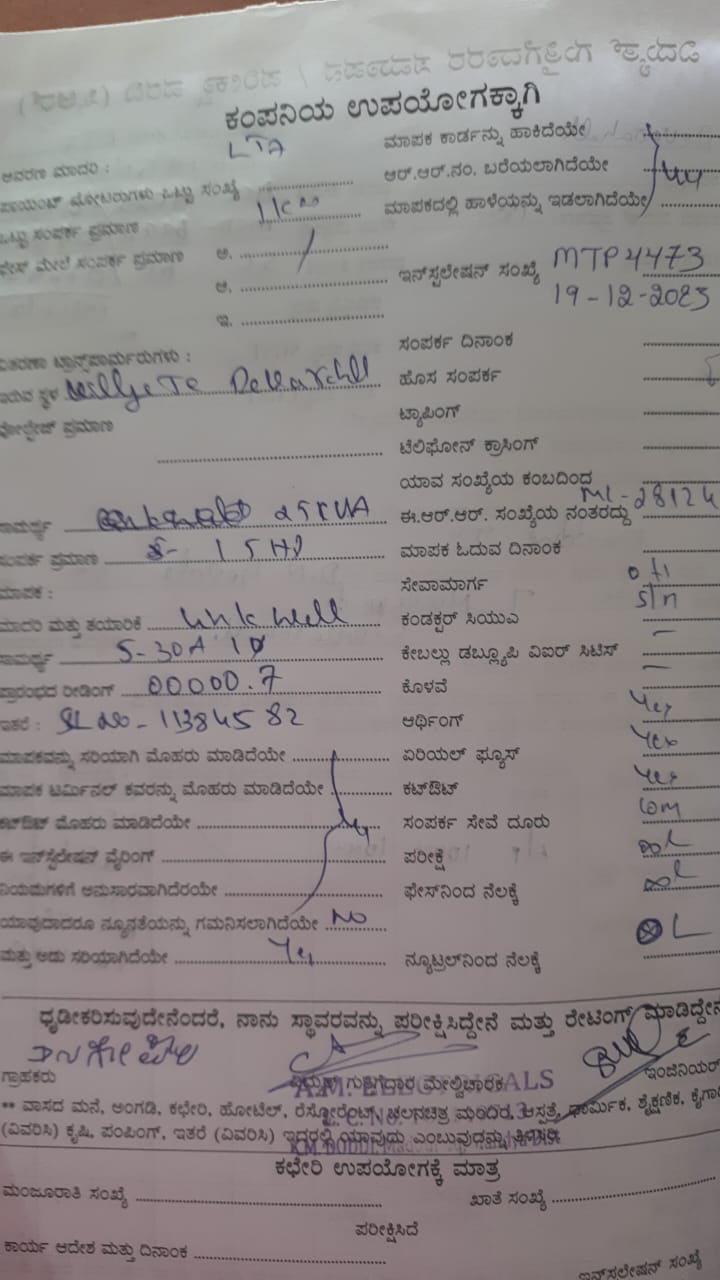 ಕಂಪನಿಯ ಉಪಯೋಗಕ್ಕಾಗಿ
LTA
ಮಾಪಕ ಕಾರ್ಡನ್ನು ಹಾಕಿದೆಯೇ
ಆವರಣ ಮಾದರಿ :
ಆರ್.ಆರ್.ನಂ. ಬರೆಯಲಾಗಿದೆಯೇ
ಪಾಯಿಂಟ್ ಮೋಟರುಗಳು ಒಟ್ಟು ಸಂಖ್ಯೆ
ಮಾಪಕದಲ್ಲಿ ಹಾಳೆಯನ್ನು ಇಡಲಾಗಿದೆಯೇ
ಒಟ್ಟು ಸಂಪರ್ಕ ಪ್ರಮಾಣ
ಫೇಸ್ ಮೇಲೆ ಸಂಪರ್ಕ ಪ್ರಮಾಣ ಅ.
ಇನ್‌ಸ್ಟಲೇಷನ್ ಸಂಖ್ಯೆ MTP 4473
ಆ.
19-12-2023
ಇ.
ಸಂಪರ್ಕ ದಿನಾಂಕ
ವಿತರಣಾ ಟ್ರಾನ್ಸ್‌ಫಾರ್ಮರುಗಳು :
ಇರುವ ಸ್ಥಳ
ಹೊಸ ಸಂಪರ್ಕ
ವೋಲ್ಟೇಜ್ ಪ್ರಮಾಣ
ಟ್ಯಾಪಿಂಗ್
ಟೆಲಿಫೋನ್ ಕ್ರಾಸಿಂಗ್
ಯಾವ ಸಂಖ್ಯೆಯ ಕಂಬದಿಂದ
ML-28124
ಸಾಮರ್ಥ್ಯ 25KVA
ಈ.ಆರ್.ಆರ್. ಸಂಖ್ಯೆಯ ನಂತರದ್ದು
ಸಂಪರ್ಕ ಪ್ರಮಾಣ 15HP
ಮಾಪಕ ಓದುವ ದಿನಾಂಕ
ಮಾಪಕ :
ಸೇವಾಮಾರ್ಗ OH
ಮಾದರಿ ಮತ್ತು ತಯಾರಿಕೆ
ಕಂಡಕ್ಟರ್ ಸಿಯುಎ
ಸಾಮರ್ಥ್ಯ 5-30A 1Ø
ಕೇಬಲ್ಲು ಡಬ್ಲ್ಯೂಪಿ ವಿಐರ್ ಸಿಟಿಸ್ –
ಪ್ರಾರಂಭದ ರೀಡಿಂಗ್ 00000.7
ಕೊಳವೆ –
ಇತರೆ : SL No - 11384582
ಆರ್ಥಿಂಗ್ Yes
ಮಾಪಕವನ್ನು ಸರಿಯಾಗಿ ಮೊಹರು ಮಾಡಿದೆಯೇ
ಏರಿಯಲ್ ಫ್ಯೂಸ್ Yes
ಮಾಪಕ ಟರ್ಮಿನಲ್ ಕವರನ್ನು ಮೊಹರು ಮಾಡಿದೆಯೇ
ಕಟ್‌ಔಟ್ Yes
ಕಟ್‌ಔಟ್ ಮೊಹರು ಮಾಡಿದೆಯೇ
ಸಂಪರ್ಕ ಸೇವೆ ದೂರು
ಈ ಇನ್‌ಸ್ಟಲೇಷನ್ ವೈರಿಂಗ್
ಪರೀಕ್ಷೆ
ನಿಯಮಗಳಿಗೆ ಅನುಸಾರವಾಗಿದೆರಯೇ
ಫೇಸ್‌ನಿಂದ ನೆಲಕ್ಕೆ
ಯಾವುದಾದರೂ ನ್ಯೂನತೆಯನ್ನು ಗಮನಿಸಲಾಗಿದೆಯೇ NO
ಮತ್ತು ಅದು ಸರಿಯಾಗಿದೆಯೇ Yes
ನ್ಯೂಟ್ರಲ್‌ನಿಂದ ನೆಲಕ್ಕೆ
ಧೃಡೀಕರಿಸುವುದೇನೆಂದರೆ, ನಾನು ಸ್ಥಾವರವನ್ನು ಪರೀಕ್ಷಿಸಿದ್ದೇನೆ ಮತ್ತು ರೇಟಿಂಗ್ ಮಾಡಿದ್ದೇನೆ
ಗ್ರಾಹಕರು
ಗುತ್ತಿಗೆದಾರ ಮೇಲ್ವಿಚಾರಕ
ಇಂಜಿನಿಯರ್
** ವಾಸದ ಮನೆ, ಅಂಗಡಿ, ಕಛೇರಿ, ಹೋಟೆಲ್, ರೆಸ್ಟೋರೆಂಟ್, ಚಲನಚಿತ್ರ ಮಂದಿರ, ಆಸ್ಪತ್ರೆ, ಧಾರ್ಮಿಕ, ಶೈಕ್ಷಣಿಕ,
(ವಿವರಿಸಿ) ಕೃಷಿ, ಪಂಪಿಂಗ್, ಇತರೆ (ವಿವರಿಸಿ) ಇದರಲ್ಲಿ ಯಾವುದು ಎಂಬುವುದನ್ನು ತಿಳಿಸಿರಿ
ಕಛೇರಿ ಉಪಯೋಗಕ್ಕೆ ಮಾತ್ರ
ಮಂಜೂರಾತಿ ಸಂಖ್ಯೆ
ಖಾತೆ ಸಂಖ್ಯೆ
ಪರೀಕ್ಷಿಸಿದೆ
ಕಾರ್ಯ ಆದೇಶ ಮತ್ತು ದಿನಾಂಕ
ಇನ್‌ಸ್ಟಲೇಷನ್ ಸಂಖ್ಯೆ